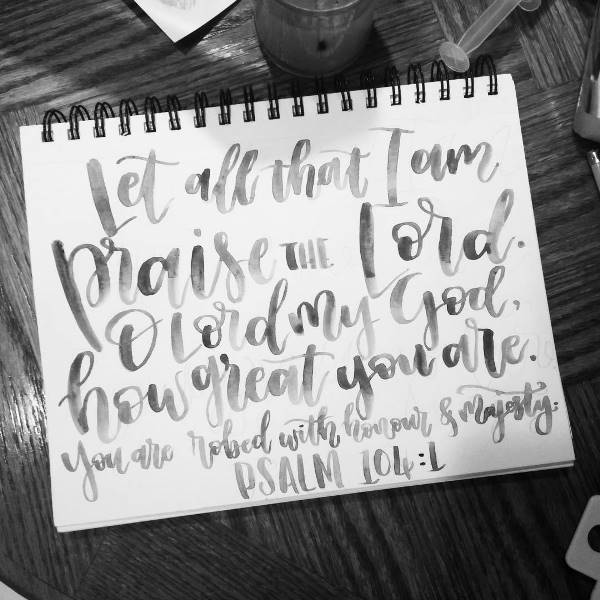 Let all that I am
praise THE Lord.
O Lord my God,
how great you are.
You are robed with honour & majesty.
PSALM 104:1